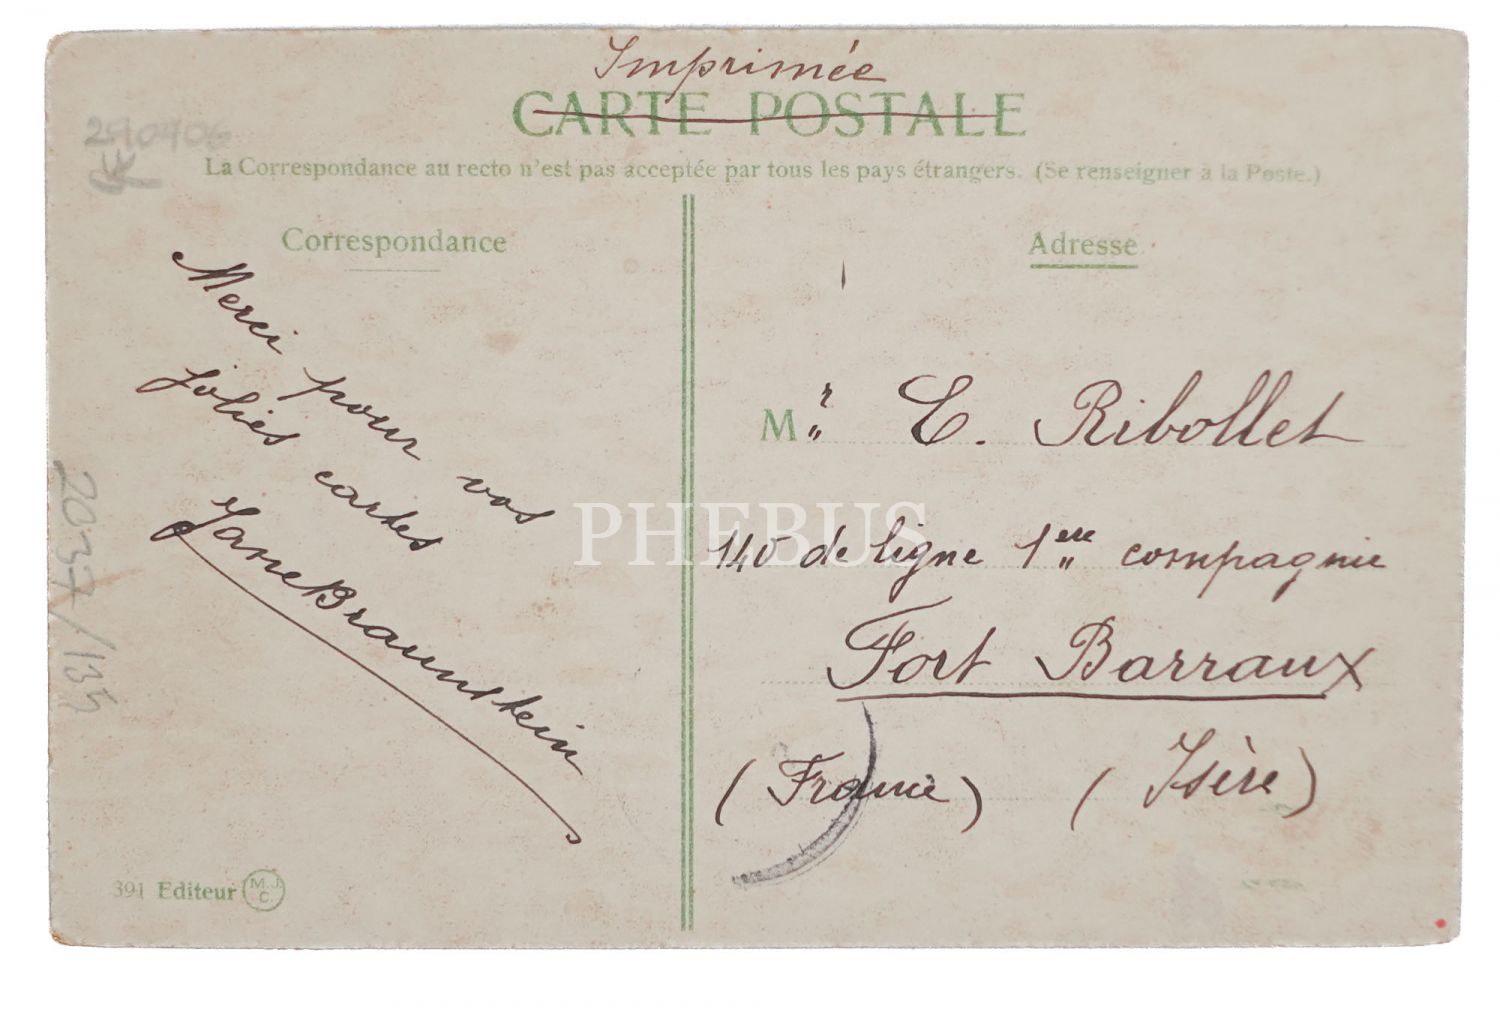 Imprimée
CARTE POSTALE
La Correspondance au recto n'est pas acceptée par tous les pays étrangers. (Se renseigner à la Poste.)
Correspondance
Merci pour vos
jolies cartes
Jane Braunstein
391 Editeur M.J.C.
Adresse
Mr. E. Ribollet
140 de ligne 1ère compagnie
Fort Barraux
(France) (Isère)
2037/139
PHEBUS